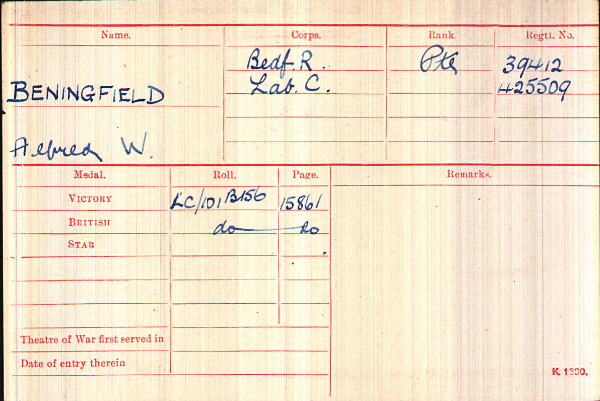 Name. Corps. Rank. Regtl. No.
Bedf. R. Pte 39412
BENINGFIELD Lab. C. 425509
Alfred W.
Medal. Roll. Page. Remarks.
VICTORY LC/101 B156 15861
BRITISH do do
STAR
Theatre of War first served in
Date of entry therein
K. 1380.